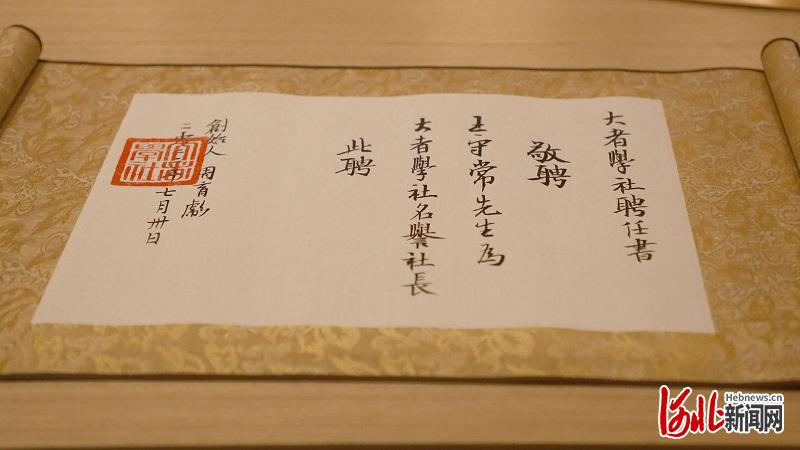 大者學社聘任書
敬聘
王守常先生為
大者學社名譽社長
此聘
創始人 周育
七月卅日
河北新闻网
Hebnews.cn